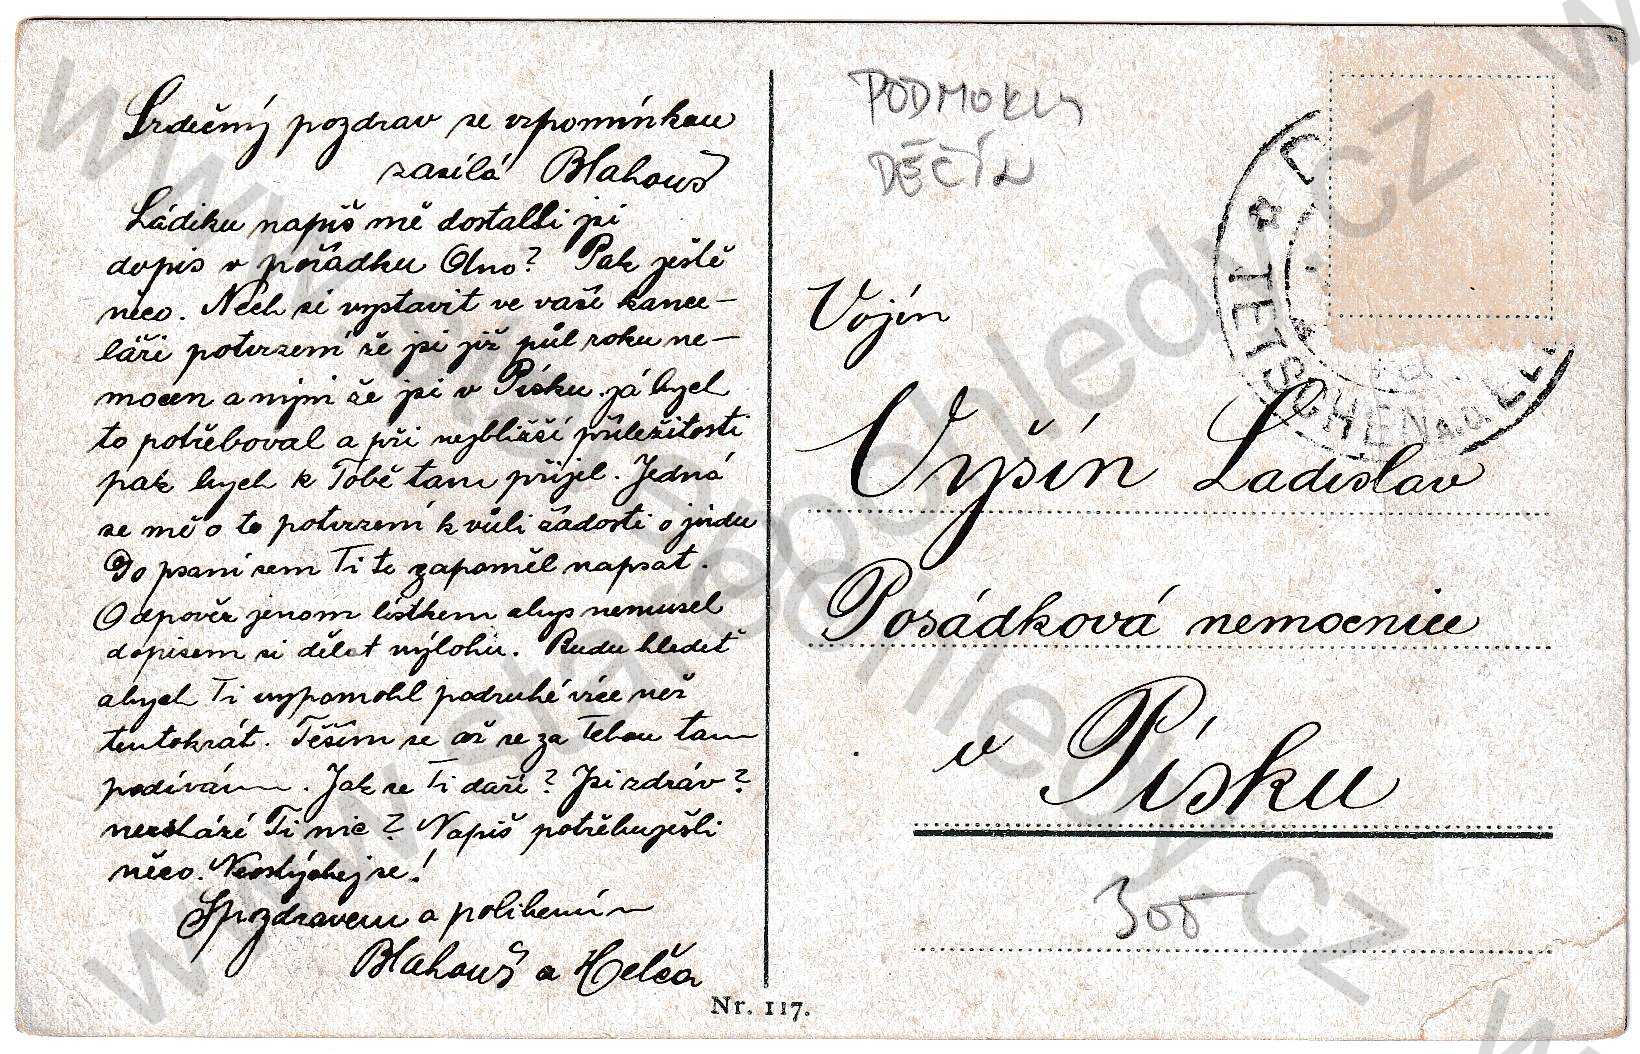 Srdečný pozdrav se vzpomínkou
zasílá Blahouš
Ládíku napiš mě dostalli jsi
dopis v pořádku Ano? Pak ještě
něco. Nech si vystavit ve vaší kance-
láři potvrzení že jsi již půl roku ne-
mocen a nyní že jsi v Písku. já bych
to potřeboval a při nejbližší příležitosti
pak bych k Tobě tam přijel. Jedná
se mě o to potvrzení k vůli žádosti o jízdu
Do psaní sem Ti to zapoměl napsat.
Odpověz jenom lístkem abys nemusel
dopisem si dělat výlohu. Budu hledět
abych Ti vypomohl podruhé více než
tentokrát. Těším se až se za Tebou tam
podívám. Jak se Ti daří? Jsi zdráv?
neschází Ti nic? Napiš potřebuješli
něco. Neostýchej se!
S pozdravem a políbením
Blahouš a Helča
Nr. 117.
PODMOKLY
DĚČÍN
TETSCHEN A.D.
Vojín
Vyšín Ladislav
Posádková nemocnice
v Písku
300
www.starepohledy.cz